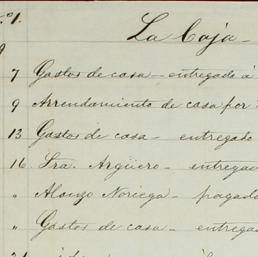 № 1.
La Caja -
7 Gastos de casa - entregado á
9 Arrendamiento de casa por
13 Gastos de casa - entregado
16 Sra. Argüero - entregad
" Alonzo Noriega - pagado
" Gastos de casa - entregad